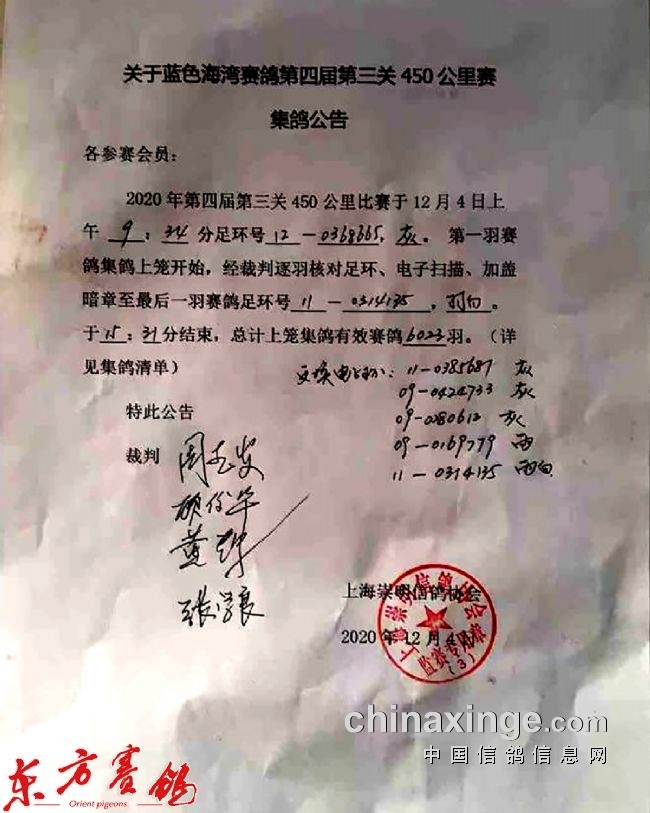 关于蓝色海湾赛鸽第四届第三关 450 公里赛
集鸽公告
各参赛会员：
2020 年第四届第三关 450 公里比赛于 12 月 4 日上
午 9：34 分足环号 12－0368665，灰。第一羽赛
鸽集鸽上笼开始，经裁判逐羽核对足环、电子扫描、加盖
暗章至最后一羽赛鸽足环号 11－0314135，雨白。
于 15：31 分结束，总计上笼集鸽有效赛鸽 6023 羽。（详
见集鸽清单）
更换电子环：11－0385687 灰
09－0424733 灰
09－0280612 灰
09－0169779 雨
11－0314135 雨白
特此公告
裁判
上海崇明信鸽协会
2020 年 12 月 4 日
上海崇明信鸽协会
监赛专用章
（3）
chinaxinge.com
中国信鸽信息网
东方赛鸽
Orient pigeons